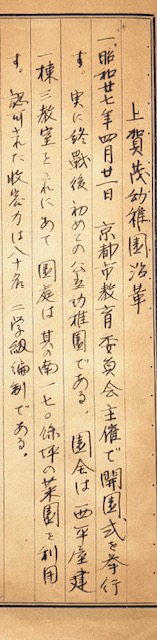 上賀茂幼稚園沿革
一、昭和廿七年四月廿一日 京都市教育委員会主催で開園式を挙行
す。実に終戦後初めての公立幼稚園である。園舎は西平屋建
一棟三教室をこれにあて 園庭は其の南一七〇余坪の菜園を利用
す。認可された收容力は八十名 二学級編制である。